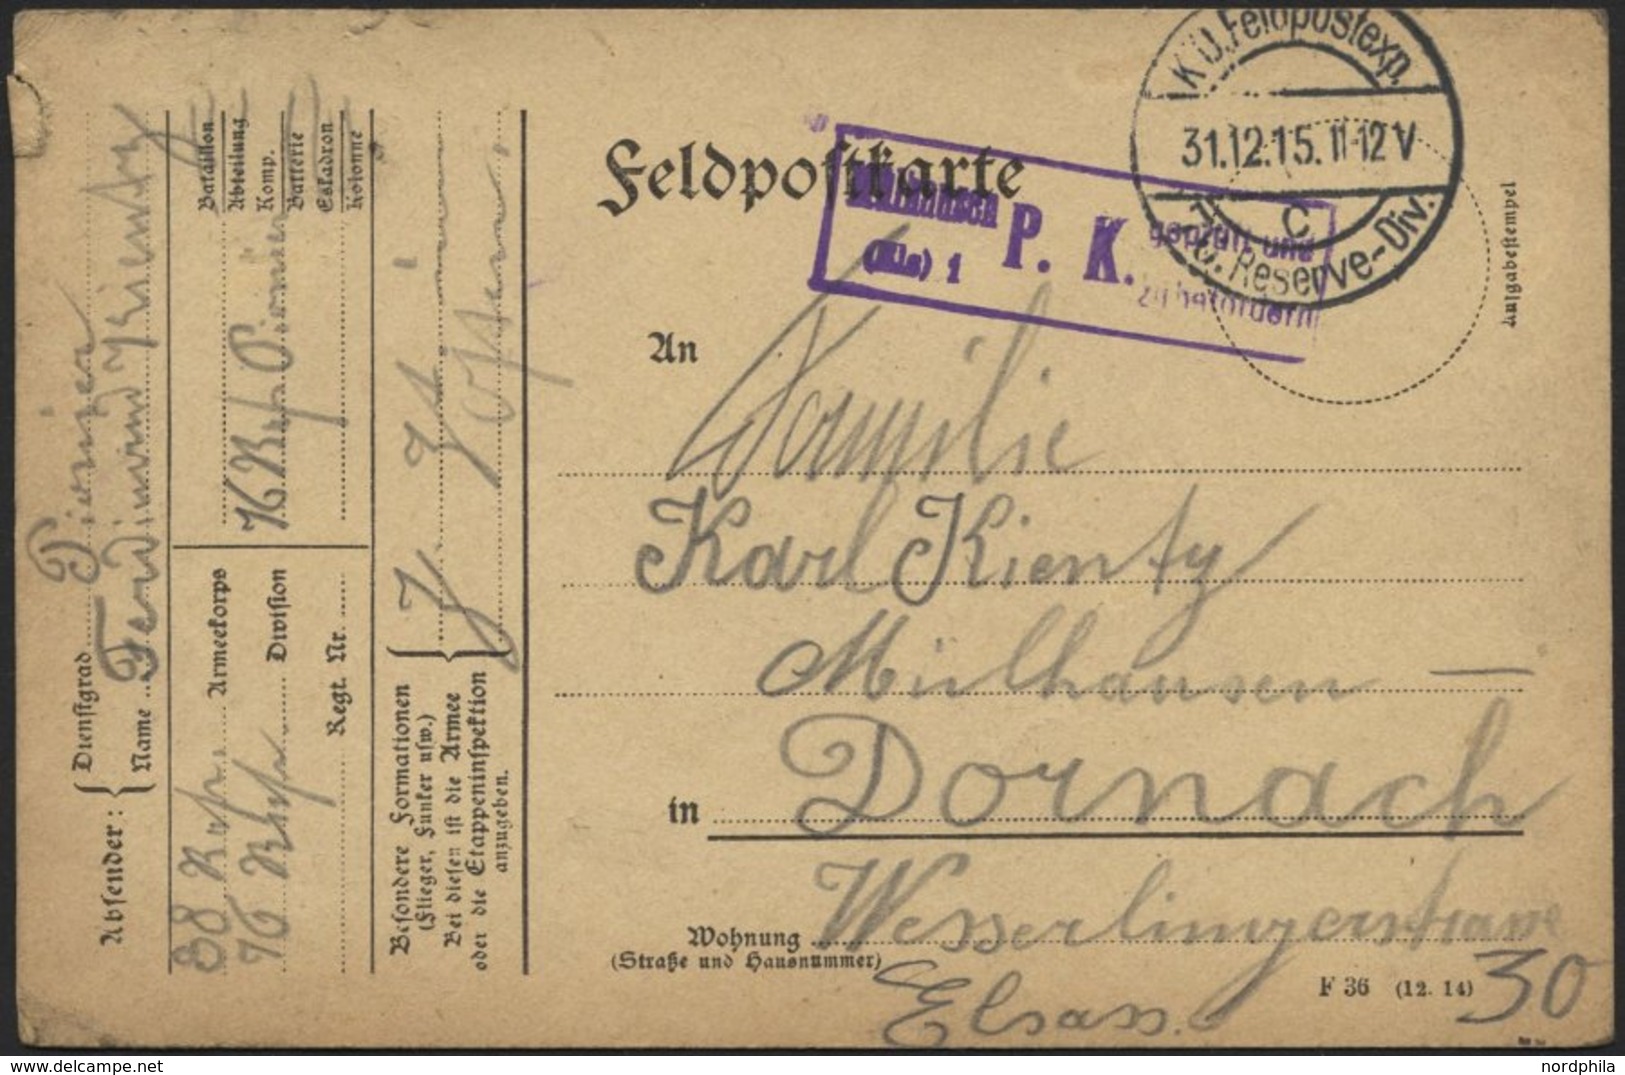 Feldpostkarte
K.D. Feldpostexp.
31.12.15. 11-12 V
c
76. Reserve-Div.
Mülhausen
(Els) 1
P. K.
geprüft und
zu befördern
Aufgabestempel
An
Familie
Karl Kientzy
Mülhausen —
in Dornach
Wohnung Wesserlingerstrasse
(Straße und Hausnummer)
30
Elsass.
F 36 (12. 14)
Absender:
Dienstgrad Pionier
Name Ferdinand Kientzy
38 Res. Armeekorps
76 Res. Division
Regt. Nr.
Bataillon
Abteilung
Komp.
Batterie
Eskadron
Kolonne
76 Res. Pionier
Besondere Formationen
(Flieger, Funker usw.)
Bei diesen ist die Armee
oder die Etappeninspektion
anzugeben.